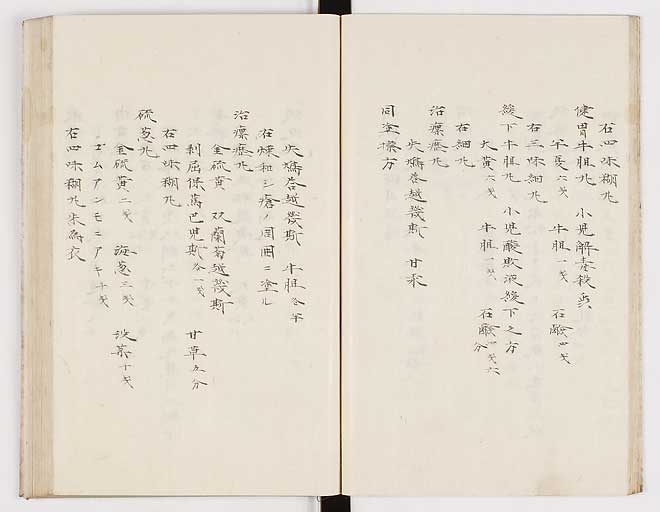 右四味糊丸
健胃牛胆丸 小児解毒殺虫
牛胆一戔 石鹸四戔
右三味細丸
緩下牛胆丸 小児酸敗液緩下之方
大黄六戔 牛胆一戔 石鹸四戔六分
右細丸
治瘰癧丸
失鳩答越幾斯 甘汞
同塗擦方
失鳩答越幾斯 牛胆各半
右煉和シ瘡ノ周囲ニ塗ル
治瘰癧丸
金硫黄 双蘭菊越幾斯
刺屈保篤巴児斯各一戔 甘草五分
右四味糊丸
硫葱丸
金硫黄二戔 海葱三戔 十戔
ゴムアンモニアキ十戔
右四味糊丸朱為衣